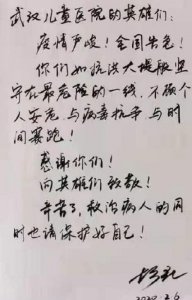 武汉儿童医院的英雄们：
疫情严峻！全国出名！
你们如抗洪大堤般坚
守在最危险的一线，不顾个
人安危，与病毒抗争，与时
间赛跑！
感谢你们！
向英雄们致敬！
辛苦了，救治病人的同
时也请保护好自己！
2020.2.6